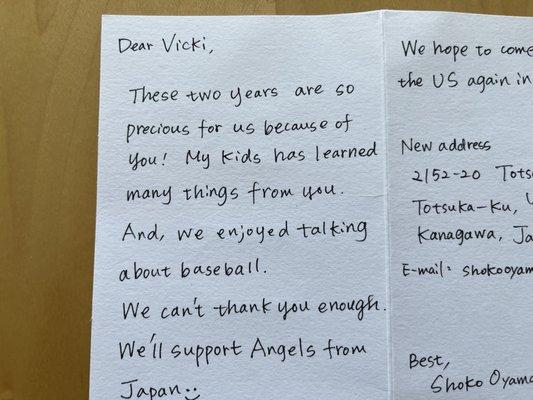 Dear Vicki,
These two years are so
precious for us because of
you! My kids has learned
many things from you.
And, we enjoyed talking
about baseball.
We can't thank you enough.
We'll support Angels from
Japan
We hope to come
the US again in
New address
2152-20
Totsuka-ku,
Kanagawa,
E-mail:
Best,
Shoko